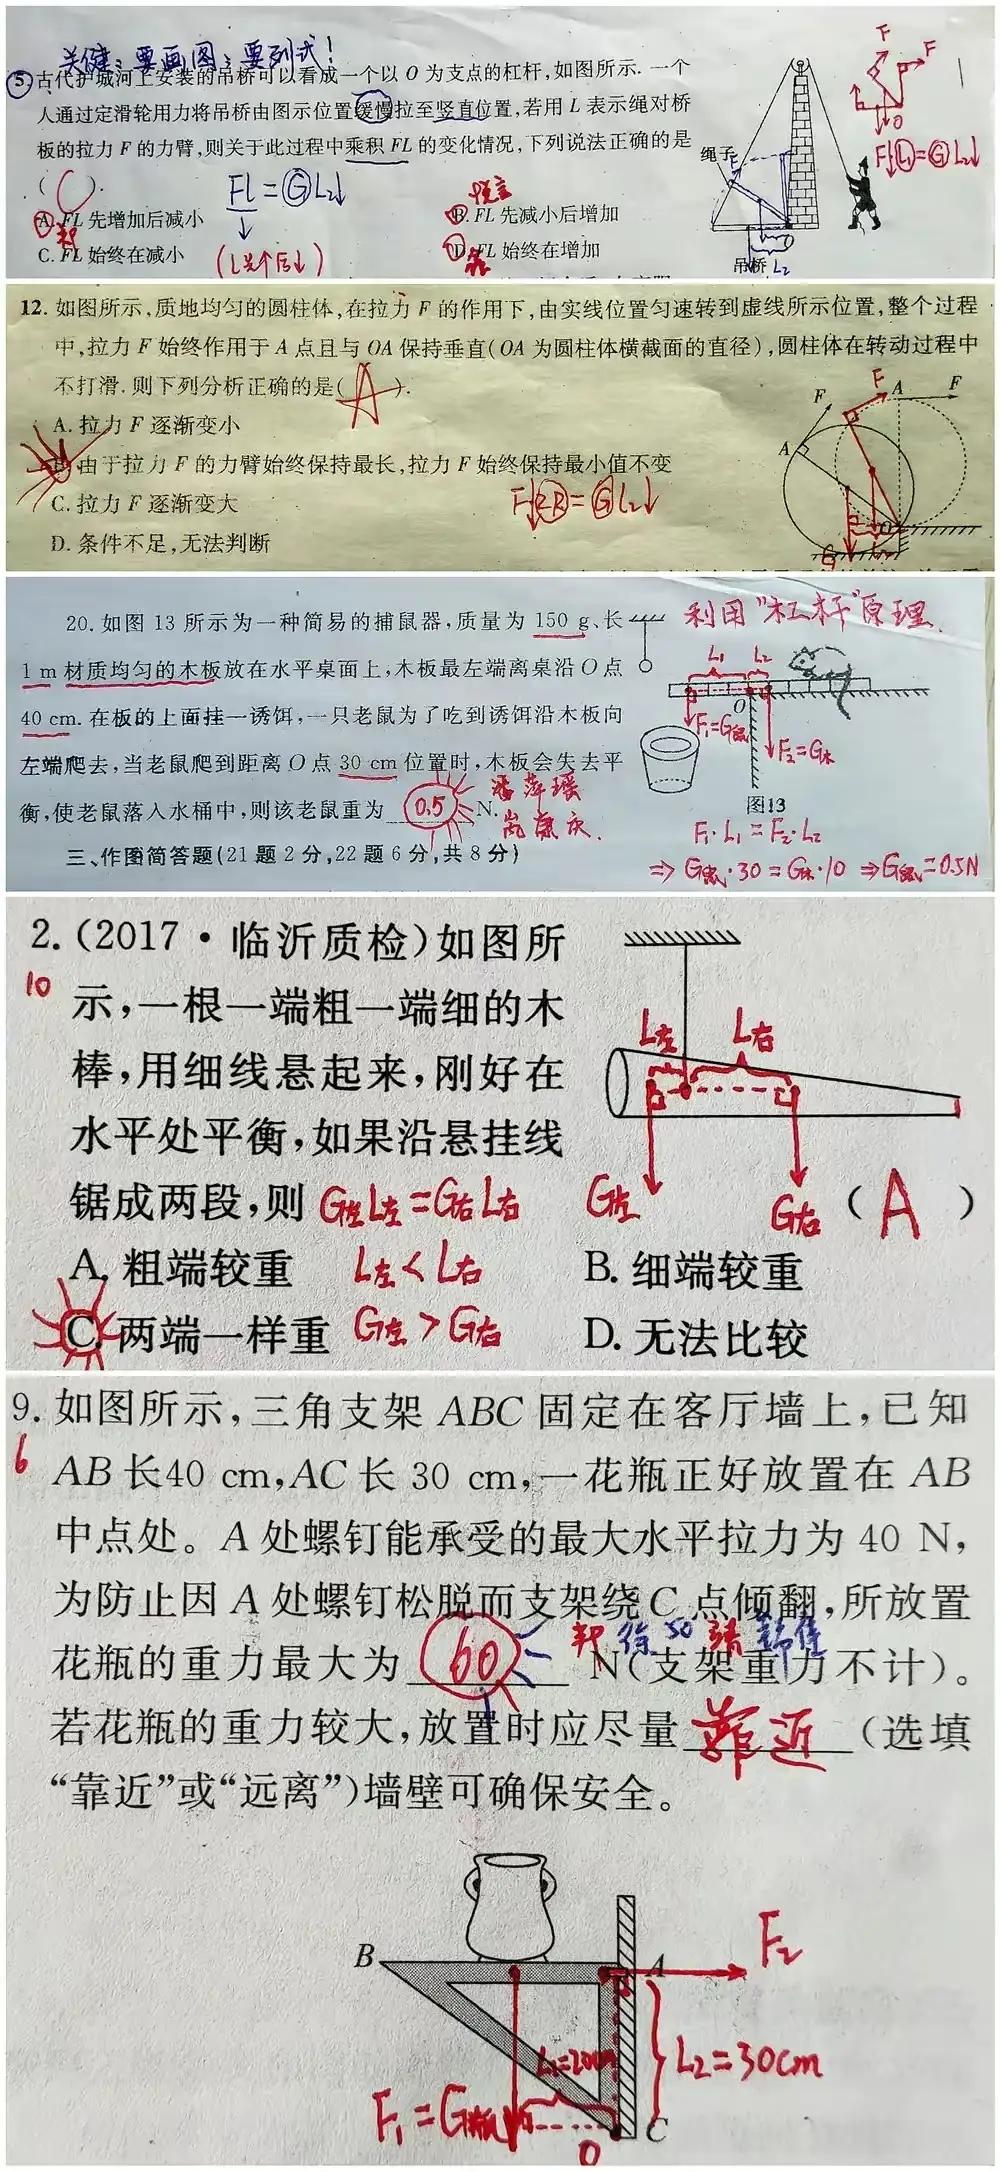 关键：要画图；要列式！
5.古代护城河上安装的吊桥可以看成一个以O为支点的杠杆,如图所示.一个
人通过定滑轮用力将吊桥由图示位置缓慢拉至竖直位置,若用L表示绳对桥
板的拉力F的力臂,则关于此过程中乘积FL的变化情况,下列说法正确的是
( C ).
FL=GL₂↓
A.FL先增加后减小
B.FL先减小后增加
C.FL始终在减小
(L先个后↓)
D.FL始终在增加
绳子
F
吊桥 L₂
F
F
O
F↓L₁=GL₂↓
12.如图所示,质地均匀的圆柱体,在拉力F的作用下,由实线位置匀速转到虚线所示位置,整个过程
中,拉力F始终作用于A点且与OA保持垂直(OA为圆柱体横截面的直径),圆柱体在转动过程中
不打滑.则下列分析正确的是( A ).
A.拉力F逐渐变小
B.由于拉力F的力臂始终保持最长,拉力F始终保持最小值不变
C.拉力F逐渐变大
D.条件不足,无法判断
F A F
F
A
O
G
20.如图13所示为一种简易的捕鼠器,质量为150 g、长
1 m材质均匀的木板放在水平桌面上,木板最左端离桌沿O点
40 cm.在板的上面挂一诱饵,一只老鼠为了吃到诱饵沿木板向
左端爬去,当老鼠爬到距离O点30 cm位置时,木板会失去平
衡,使老鼠落入水桶中,则该老鼠重为 0.5 N.
三、作图简答题(21题2分,22题6分,共8分)
利用“杠杆”原理.
L₁ L₂
O
F₁=G鼠
F₂=G木
图13
F₁·L₁=F₂·L₂
⇒G鼠·30=G木·10⇒G鼠=0.5N
2.(2017·临沂质检)如图所
10
示,一根一端粗一端细的木
棒,用细线悬起来,刚好在
水平处平衡,如果沿悬挂线
锯成两段,则 G左L左=G右L右
( A )
A.粗端较重 L左<L右
B.细端较重
C.两端一样重 G左>G右
D.无法比较
L左 L右
G左
G右
9.如图所示,三角支架ABC固定在客厅墙上,已知
6
AB长40 cm,AC长30 cm,一花瓶正好放置在AB
中点处。A处螺钉能承受的最大水平拉力为40 N,
为防止因A处螺钉松脱而支架绕C点倾翻,所放置
花瓶的重力最大为 60 N(支架重力不计)。
若花瓶的重力较大,放置时应尽量 靠近 (选填
“靠近”或“远离”)墙壁可确保安全。
B
A
F₂
L₁=20cm
L₂=30cm
F₁=G瓶
O
C